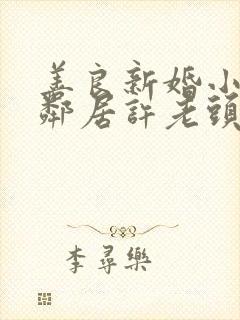 善良新婚小
鄰居許老頭
李尋樂